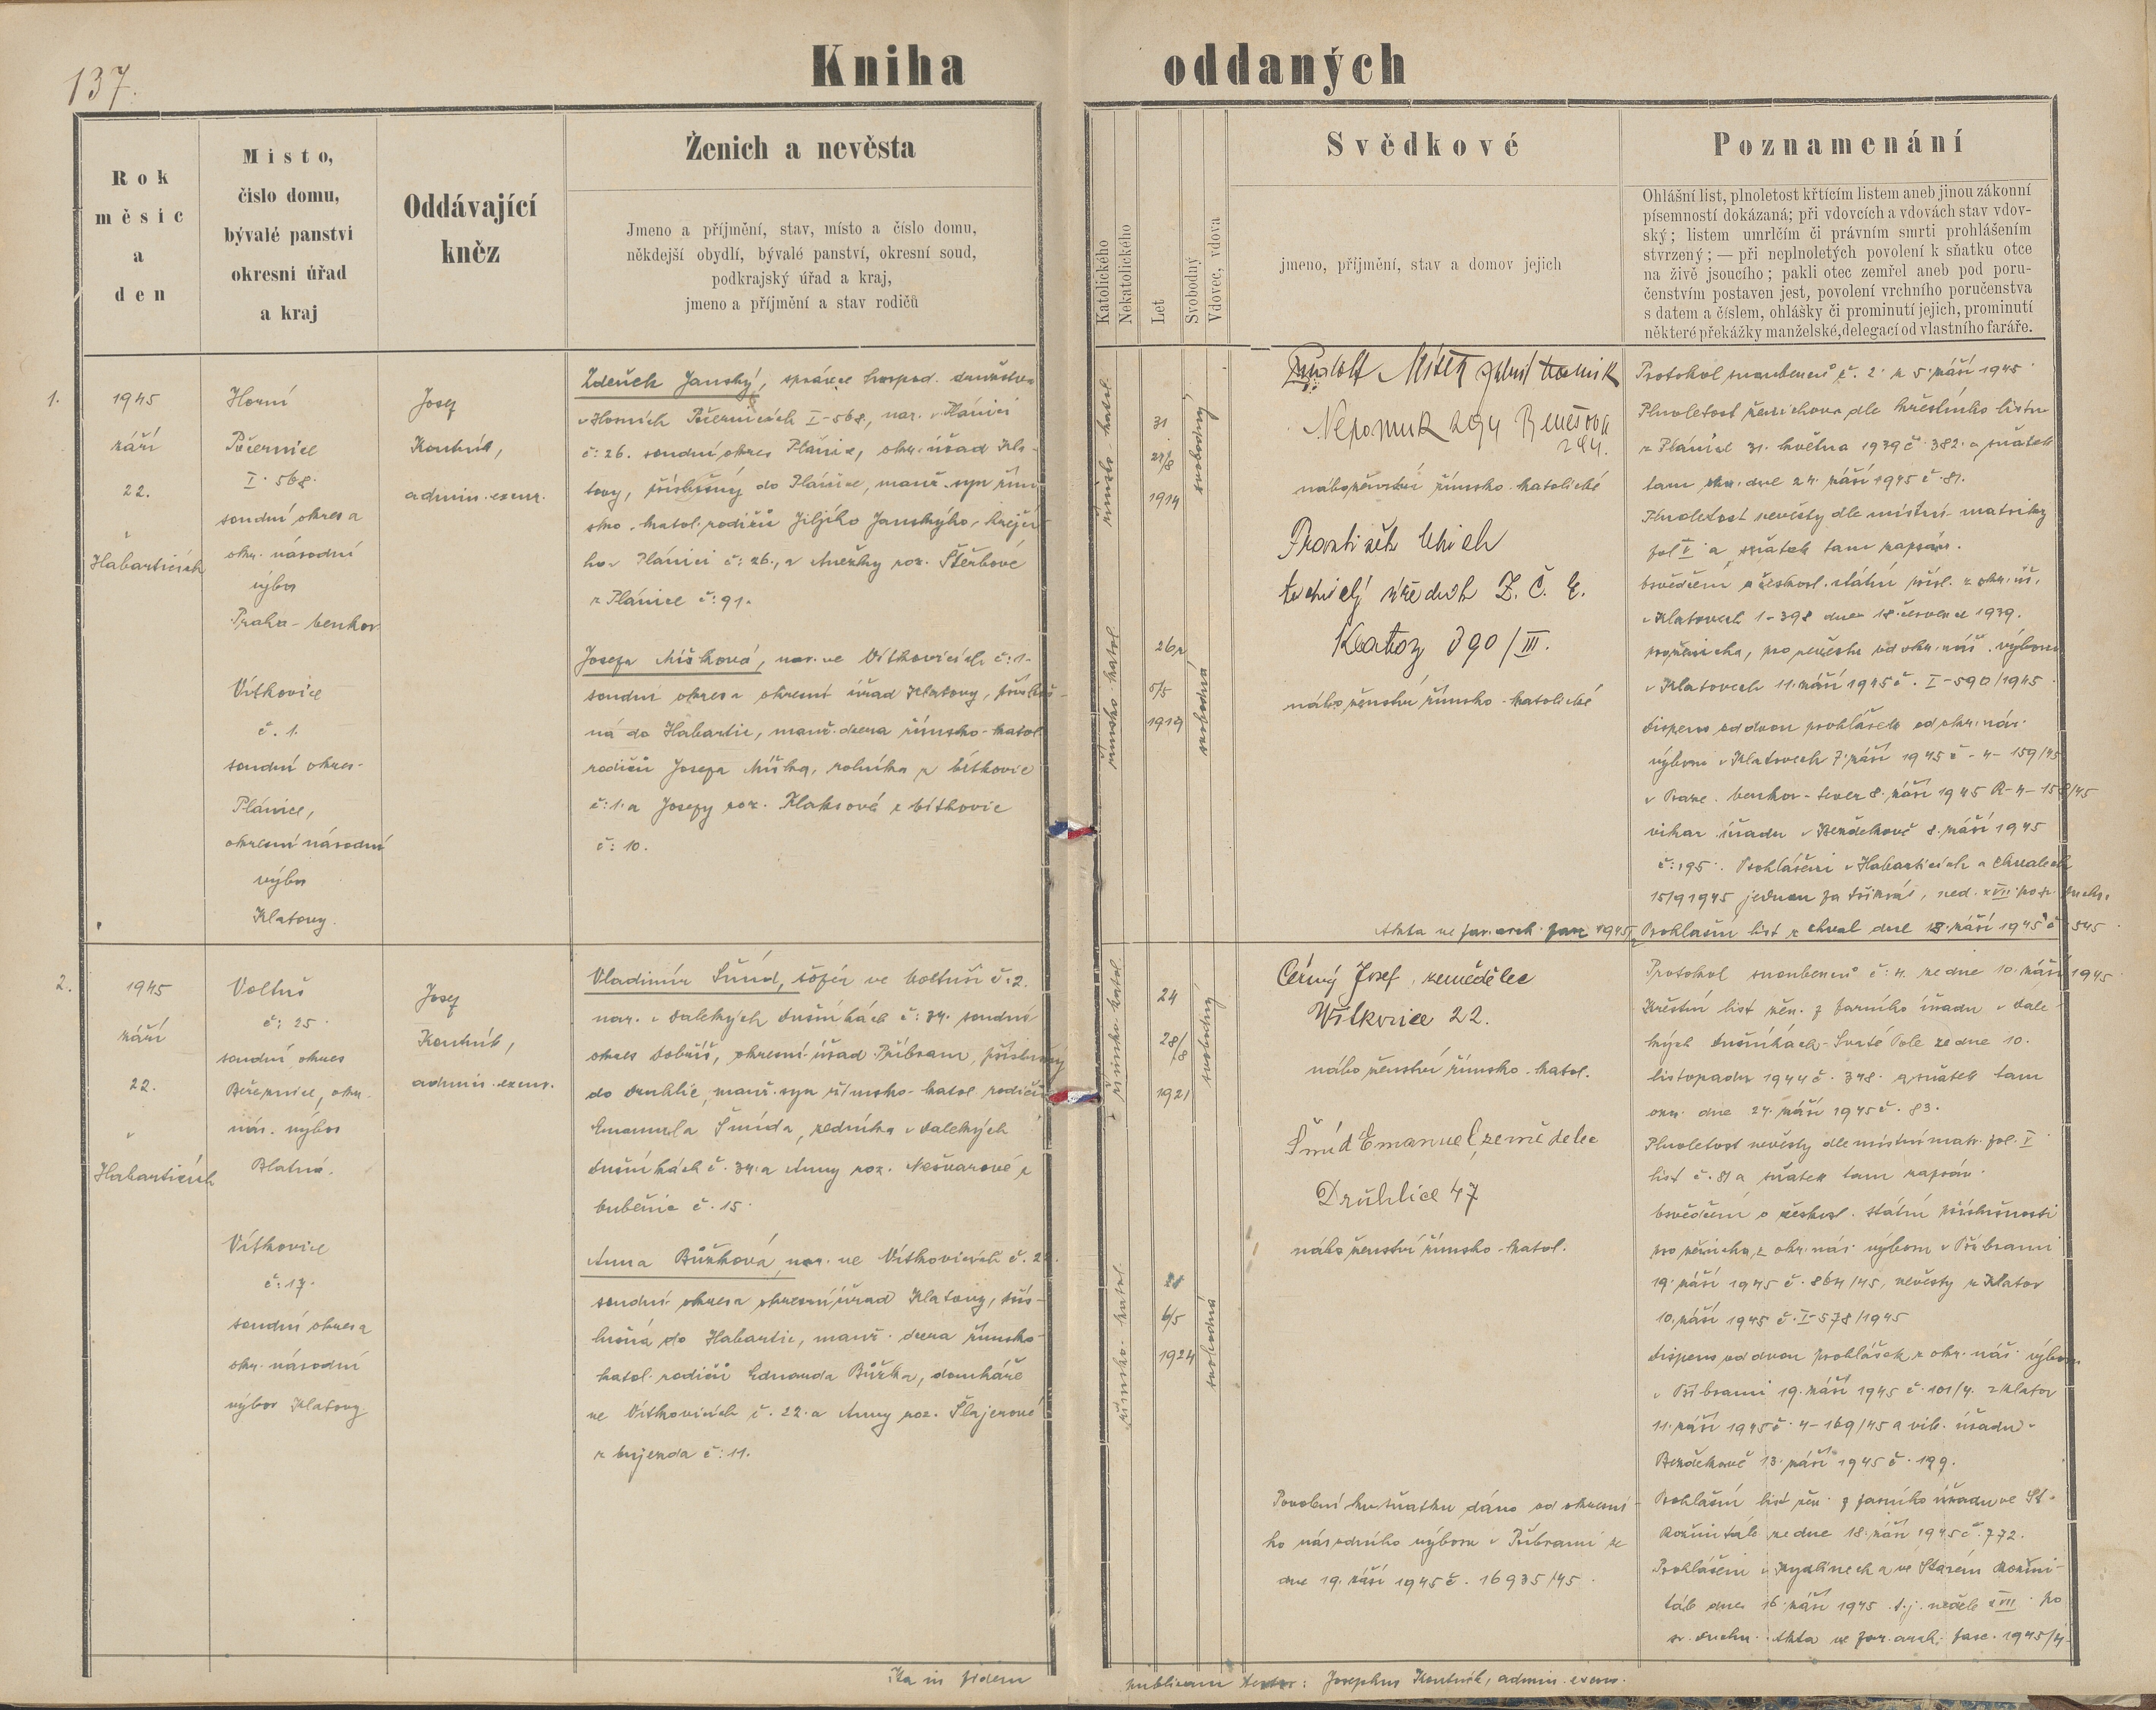 137.
Kniha oddaných
Rok
měsíc
a
den
Misto,
čislo domu,
bývalé panství
okresní úřad
a kraj
Oddávající
kněz
Ženich a nevěsta
Jmeno a příjmění, stav, místo a číslo domu,
někdejší obydlí, bývalé panství, okresní soud,
podkrajský úřad a kraj,
jmeno a příjmění a stav rodičů
Katolického
Nekatolického
Let
Svobodný
Vdovec, vdova
Svědkové
jmeno, příjmění, stav a domov jejich
Poznamenání
Ohlášní list, plnoletost křtícím listem aneb jinou zákonní
písemností dokázaná; při vdovcích a vdovách stav vdov-
ský; listem umrlčím či právním smrti prohlášením
stvrzený; — při neplnoletých povolení k sňatku otce
na živě jsoucího; pakli otec zemřel aneb pod poru-
čenstvím postaven jest, povolení vrchního poručenstva
s datem a číslem, ohlášky či prominutí jejich, prominutí
některé překážky manželské, delegací od vlastního faráře.
1.
1945
září
22.
Habarticích
Horní
Počernice
I. 568.
soudní okres a
okr. národní
výbor
Praha - venkov
Vítkovice
č. 1.
soudní okres
Plánice,
okresní národní
výbor
Klatovy.
Josef
Koutník,
admin. excur.
Zdeněk Janský, správce hospod. družstva
v Horních Počernicích I-568., nar. v Plánici
č: 26. soudní okres Plánice, okr. úřad Kla-
tovy, příslušný do Plánice, manž. syn řím
sko. katol. rodičů Jiljího Janského, krejčí
ho v Plánici č: 26., a Anežky roz. Štěrbové
z Plánice č: 91.
Josefa Míšková, nar. ve Vítkovicích č: 1.
soudní okres a okresní úřad Klatovy, přísluš-
ná do Habartic, manž. dcera římsko-katol.
rodičů Josefa Míška, rolníka z Vítkovic
č: 1. a Josefy roz. Klaksové z Vítkovic
č: 10.
římsko katol.
31
27/8
1914
svobodný
římsko-katol.
26
5/5
1919
svobodná
Rudolf
Nepomuk 294
294.
náboženství římsko-katolické
František Uhich
technický úředník Z. Č. E.
Klatovy 390/III.
náboženství římsko-katolické
Akta ve far. arch. 1945/2
Protokol snoubenců č. 2. z 5. září 1945
Plnoletost ženichova dle křestního listu
z Plánice 31. května 1939 č. 382. a sňatek
tam dne 24. září 1945 č. 81.
Plnoletost nevěsty dle místní matriky
fol I a sňatek tam zapsán.
Osvědčení o českosl. státní přísl. z okr. úř.
v Klatovech 1-398 dne 18. července 1939.
pro ženicha, pro nevěstu od okr. nár. výboru
v Klatovech 11. září 1945 č. I-590/1945
Dispens od dvou prohlášek od okr. nár.
výboru v Klatovech 7. září 1945 č - 4 - 159/45
v Praze. venkov - sever 8. září 1945 R-4-158/45
vikar. úřadu v Bezděkově 8. září 1945
č: 195. Prohlášení v Habarticích a Chvalech
15/9 1945 jednou za třikrát, ned. XVII. po sv. Duchu.
Prohlášní list z Chval dne 18. září 1945 č 545
2.
1945
září
22.
v
Habarticích
Voltuš
č: 25
soudní okres
Březnice, okr.
nár. výbor
Blatná.
Vítkovice
č: 17.
soudní okres a
okr. národní
výbor Klatovy
Josef
Koutník,
admin. excur.
Vladimír Šmíd, šofér ve Voltuši č: 2.
nar. v Dalekých Dušníkách č: 34. soudní
okres Dobříš, okresní úřad Příbram, příslušný
do Druhlic, manž. syn římsko-katol. rodičů
Emanuela Šmída, zedníka v Dalekých
Dušníkách č. 34. a Anny roz. Nešvarové z
č. 15.
Anna Bůžková, nar. ve Vítkovicích č. 22.
soudní okres a okresní úřad Klatovy, přís-
lušná do Habartic, manž. dcera římsko-
katol. rodičů Eduarda Bůžka, domkáře
ve Vítkovicích č. 22. a Anny roz. Šlajerové
z Vujezda č: 11.
římsko-katol.
24
28/8
1921
svobodný
římsko-katol.
21
6/5
1924
svobodná
Černý Josef, zemědělec
Vítkovice 22.
náboženství římsko-katol.
Šmíd Emanuel, zemědělec
Druhlice 47
náboženství římsko-katol.
Povolení ku sňatku dáno od okresní-
ho národního výboru v Příbrami ze
dne 19. září 1945 č. 16935/45.
Protokol snoubenců č: 4. ze dne 10. září 1945
Křestní list žen. z farního úřadu v Dale
kých Dušníkách - Svaté Pole ze dne 10.
listopadu 1944 č. 348. a sňatek tam
ozn. dne 24. září 1945 č. 83.
Plnoletost nevěsty dle místní matr. fol. I
list č. 81 a sňatek tam zapsán.
Osvědčení o českosl. státní příslušnosti
pro ženicha z okr. nár. výboru v Příbrami
19. září 1945 č. 864/45, nevěsty z Klatov
10. září 1945 č. I-578/1945
Dispens od dvou prohlášek z okr. nár. výboru
v Příbrami 19. září 1945 č. 101/4. z Klatov
11. září 1945 č. 4-169/45 a vik. úřadu v
Bezděkově 13. září 1945 č. 199.
Prohlášní list žen. z farního úřadu ve St.
Rožmitále ze dne 18. září 1945 č. 772.
Prohlášeni v Kydlinech a ve Starém Rožmi-
tále dne 16. září 1945 t. j. neděle XVII. po
sv. Duchu. Akta ve far. arch. fasc. 1945/4.
Ita in fidem publicam testor: Josephus Koutník, admin. excur.